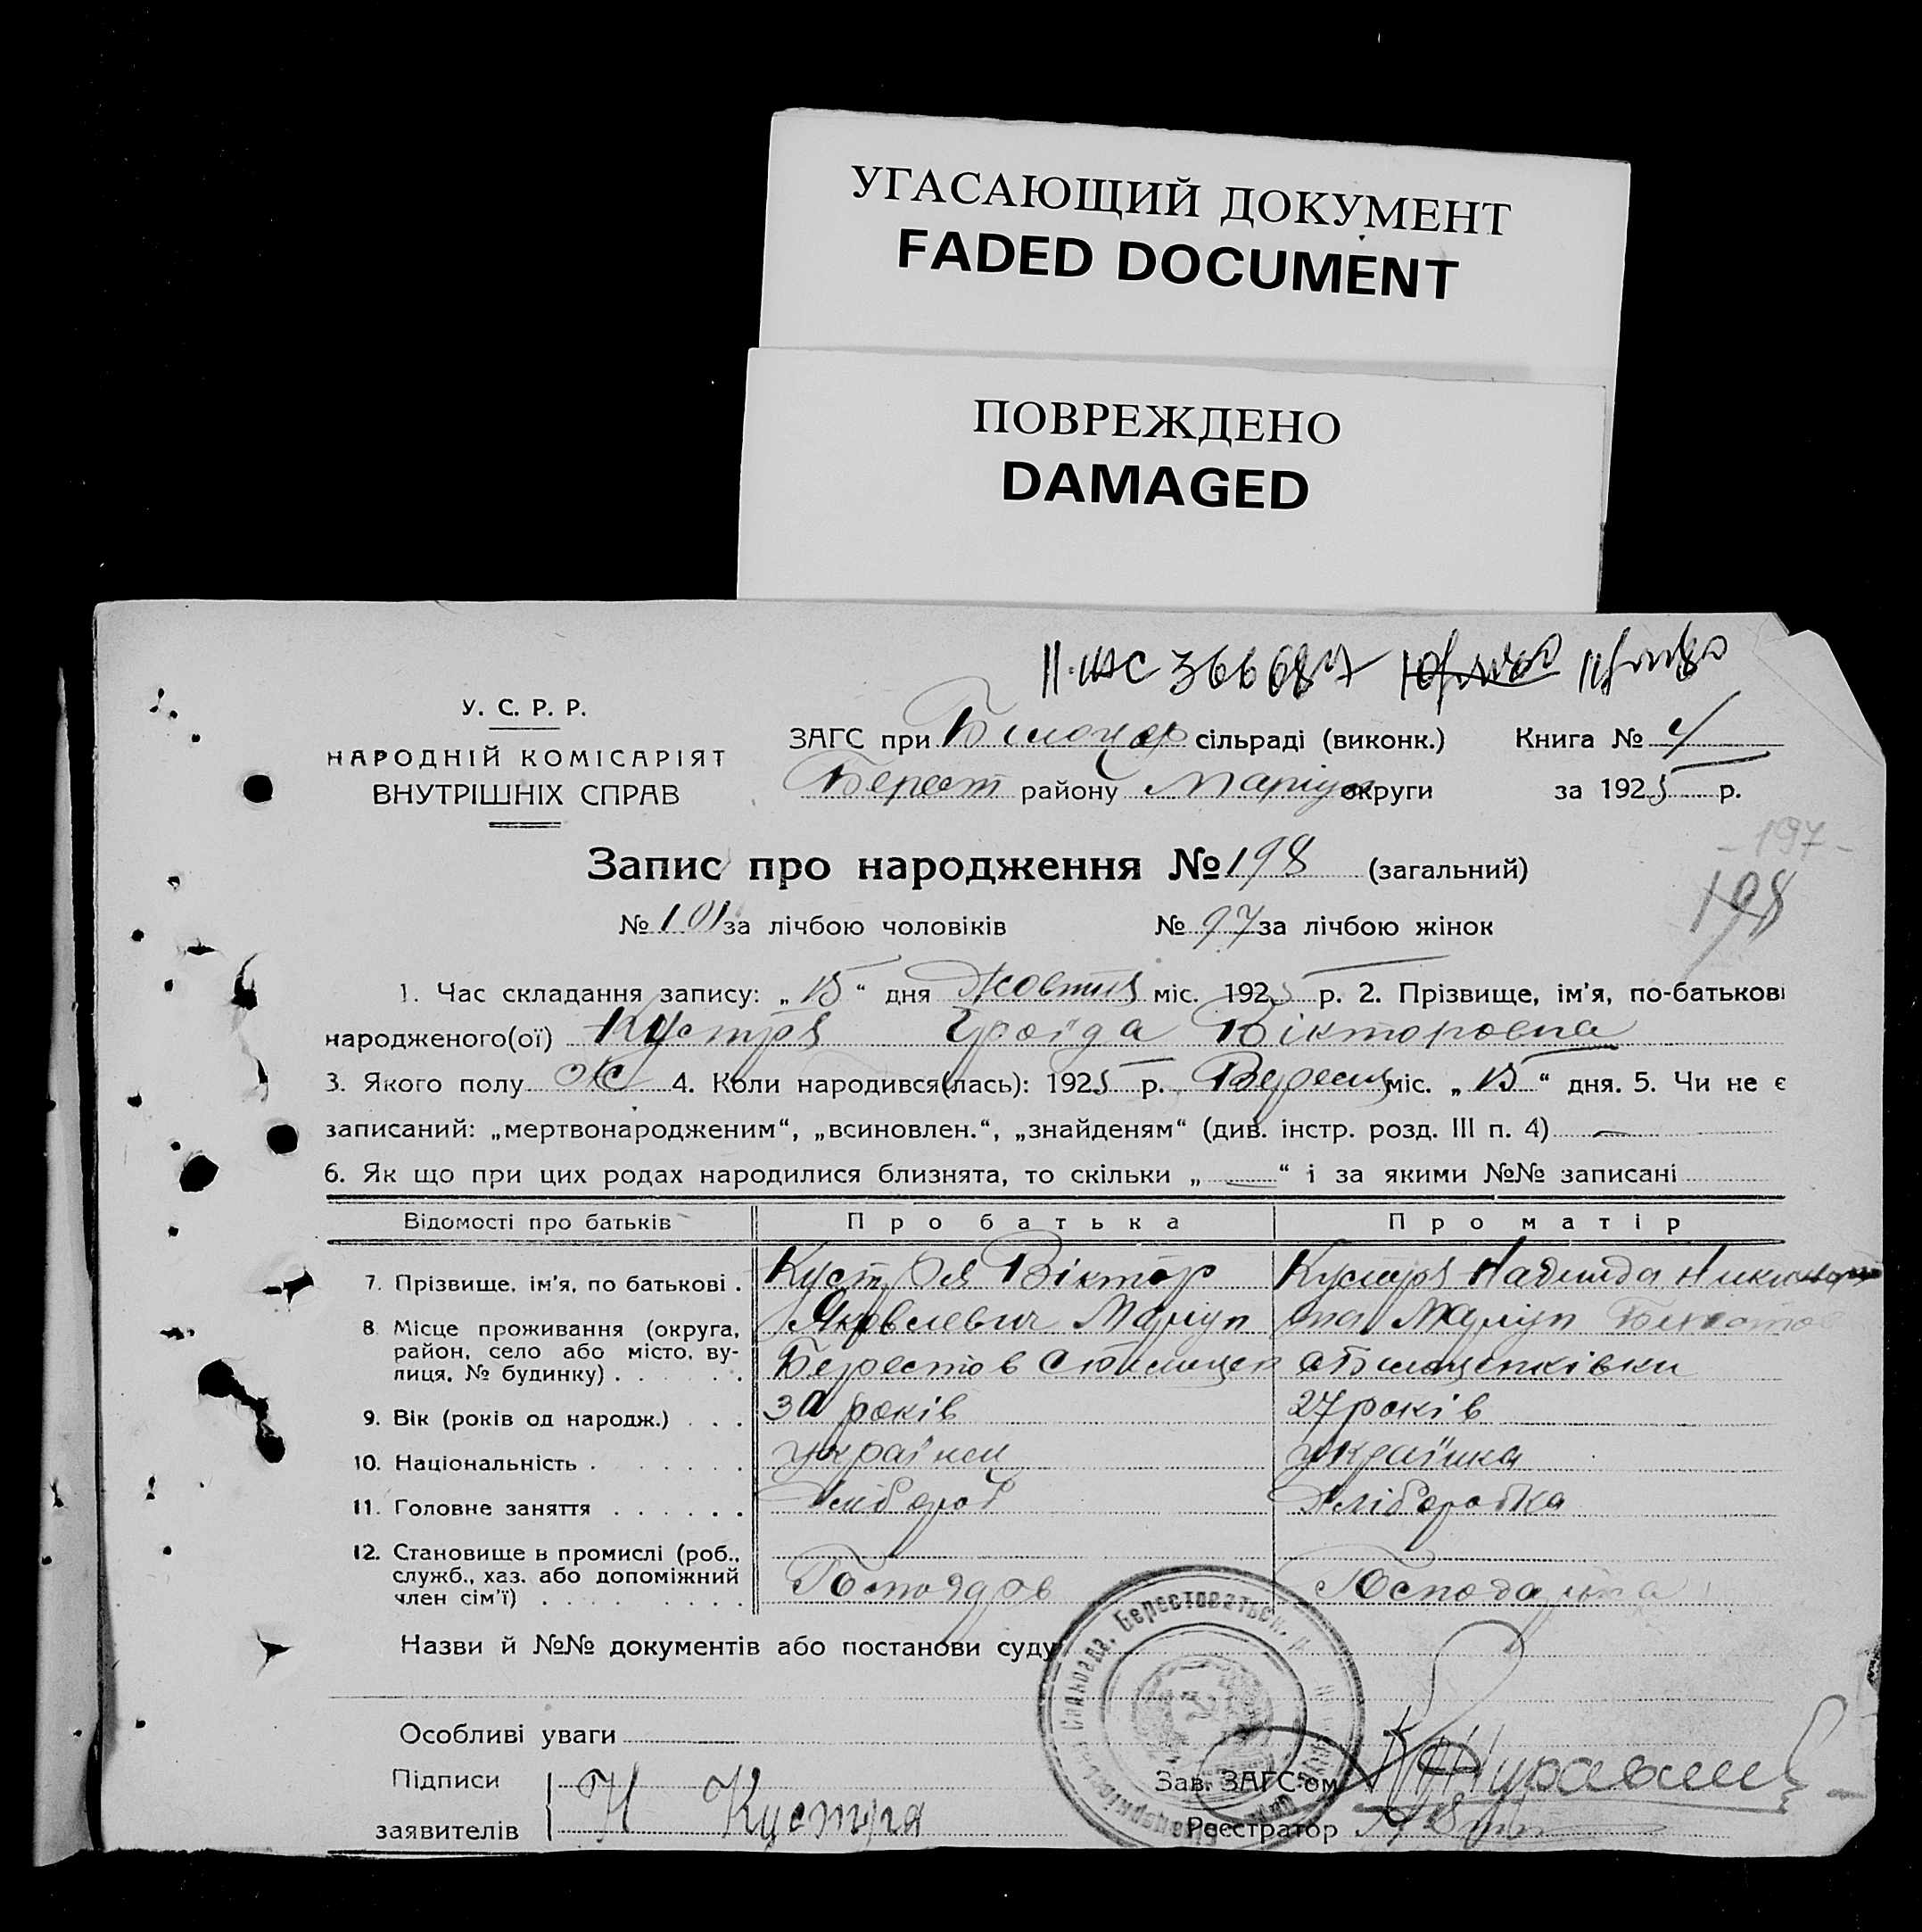 УГАСАЮЩИЙ ДОКУМЕНТ
FADED DOCUMENT
ПОВРЕЖДЕНО
DAMAGED
У. С. Р. Р.
НАРОДНІЙ КОМІСАРІЯТ
ВНУТРІШНІХ СПРАВ
ЗАГС при сільраді (виконк.) Книга № 4
Берест району Маріуп округи за 1925 р.
- 197 -
Запис про народження № 198 (загальний)
198
№ 101 за лічбою чоловіків № 97 за лічбою жінок
1. Час складання запису: „ 15 “ дня Жовтня міс. 1925 р. 2. Прізвище, ім’я, по-батькові
народженого(ої) Кустря Іроїда Вікторовна
3. Якого полу Ж 4. Коли народився(лась): 1925 р. Вересня міс. „ 15 “ дня. 5. Чи не є
записаний: „мертвонародженим“, „всиновлен.“, „знайденям“ (див. інстр. розд. III п. 4) —
6. Як що при цих родах народилися близнята, то скільки „ — “ і за якими №№ записані
Відомості про батьків Про батька Про матір
7. Прізвище, ім’я, по батькові . Кустря Віктор Кустря Надежда
8 Місце проживання (округа, Яковлевич Маріуп вна Маріуп
район, село або місто, ву- Берестов
лиця, № будинку) . . . . . .
9. Вік (років од народж.) . . . 30 років 27 років
10. Національність . . . . . . українец українка
11. Головне заняття . . . . . . Хлібороб Хліборобка
12. Становище в промислі (роб.,
служб., хаз. або допоміжний
член сім’ї) . . . . . . . . .
Назви й №№ документів або постанови суду
Особливі уваги
Підписи
заявителів Н Кустря
Зав. ЗАГС’ом
Реєстратор